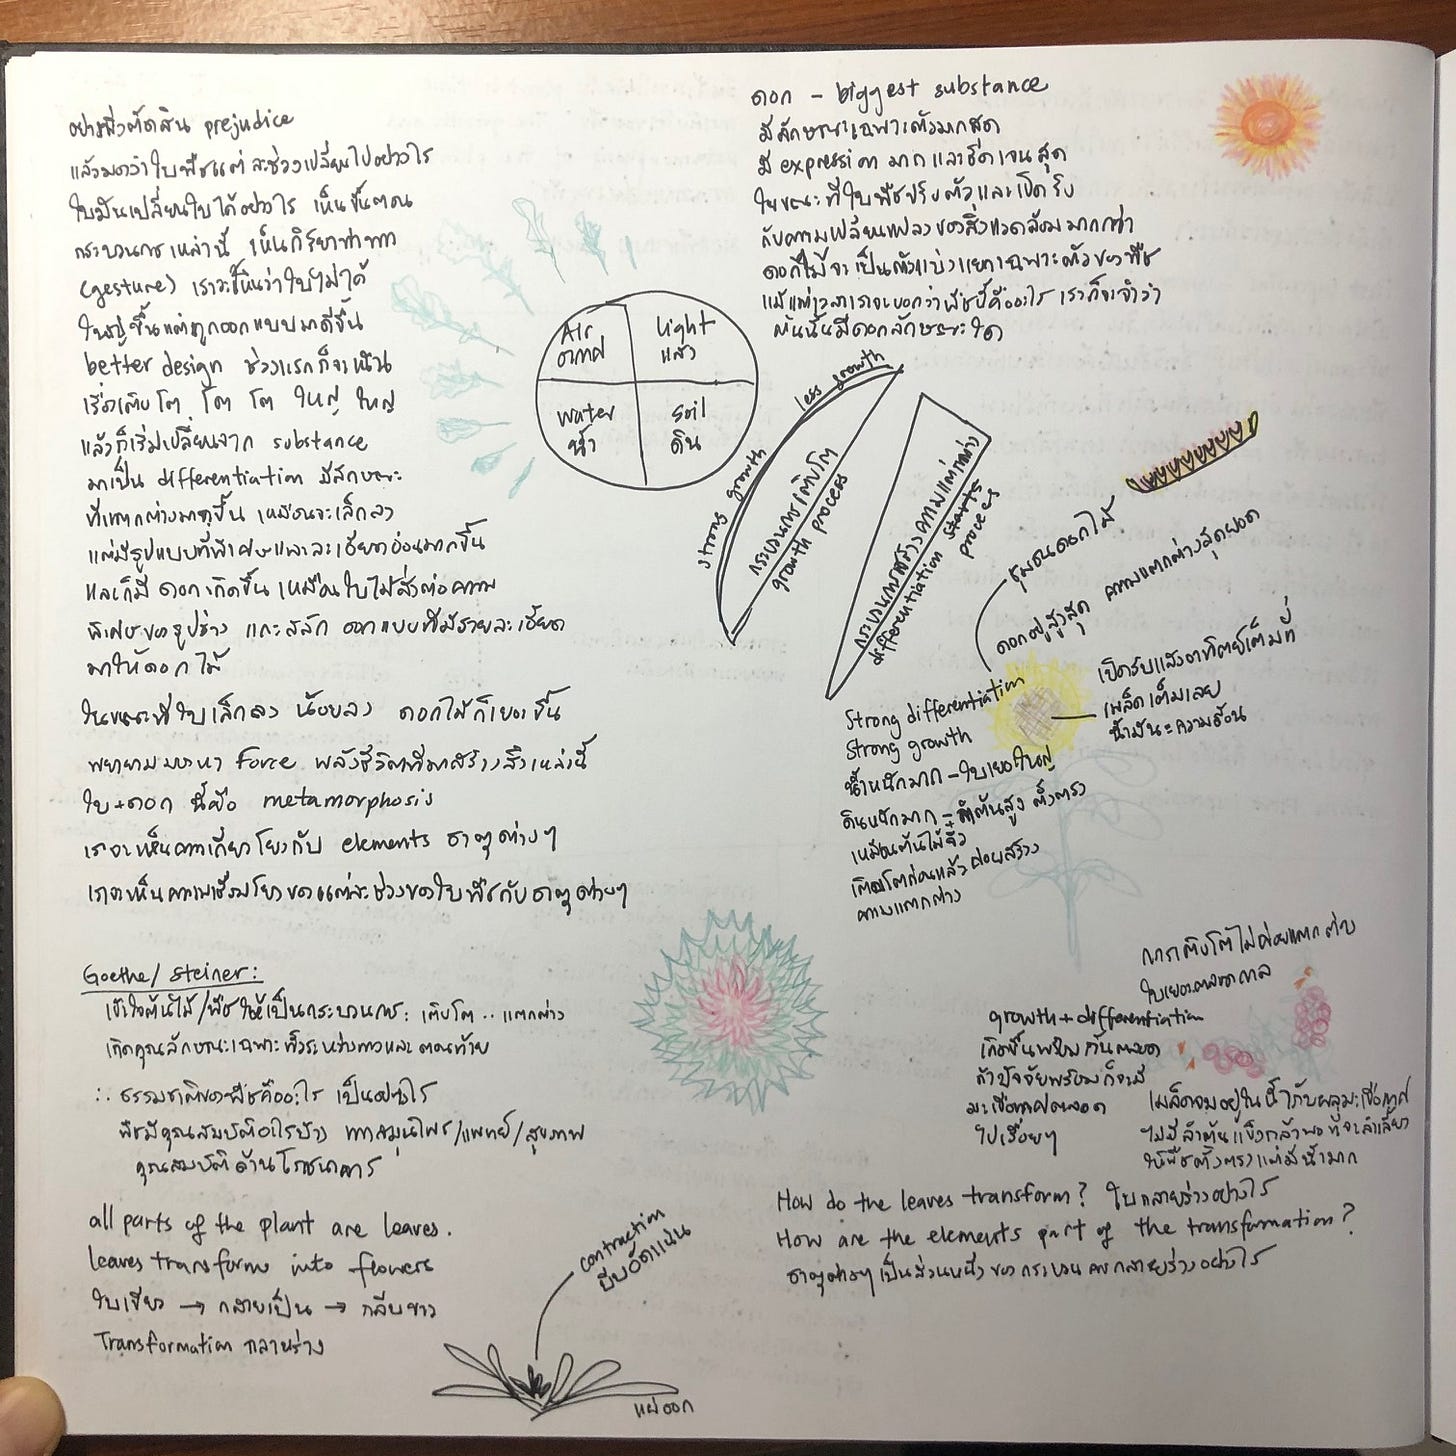 อย่าเพิ่งตัดสิน prejudice
แล้วมาดูว่าใบพืชแต่ละช่วงเปลี่ยนไปอย่างไร
ใบมันเปลี่ยนใบได้อย่างไร เห็นขั้นตอน
กระบวนการเหล่านี้ เห็นกิริยาท่าทาง
(gesture) เราจะเห็นว่าใบไม่ได้
ใหญ่ขึ้นแต่ถูกออกแบบมาดีขึ้น
better design ช่วงแรกก็จะเน้น
เริ่มเติบโต โต โต ใหญ่ ใหญ่
แล้วก็เริ่มเปลี่ยนจาก substance
มาเป็น differentiation มีลักษณะ
ที่แตกต่างมากขึ้น เหมือนจะเล็กลง
แต่มีรูปแบบที่พิเศษและละเอียดอ่อนมากขึ้น
และก็มี ดอกเกิดขึ้น เหมือนใบไม้ส่งต่อความ
พิเศษของรูปร่าง แกะสลัก ออกแบบที่มีรายละเอียด
มาให้ดอกไม้
ในขณะที่ใบเล็กลง น้อยลง ดอกไม้ก็เยอะขึ้น
พยายามมองหา Force พลังชีวิตที่มาสร้างสิ่งเหล่านี้
ใบ→ดอก นี้คือ metamorphosis
เราจะเห็นความเกี่ยวโยงกับ elements ธาตุต่างๆ
เราจะเห็นความเชื่อมโยงของแต่ละช่วงของใบพืชกับธาตุต่างๆ
Goethe/ Steiner:
เข้าใจต้นไม้/พืชให้เป็นกระบวนการ: เติบโต .. แตกต่าง
เกิดคุณลักษณะเฉพาะทั้งระหว่างทางและตอนท้าย
∴ ธรรมชาติของพืชคืออะไร เป็นอย่างไร
พืชมีคุณสมบัติอะไรบ้าง ทางสมุนไพร/แพทย์/สุขภาพ
คุณสมบัติด้านโภชนาการ
all parts of the plant are leaves.
leaves transforms into flowers
ใบเขียว → กลายเป็น → กลีบขาว
Transformation กลายร่าง
contraction
บีบอัดแน่น
แผ่ออก
Air
อากาศ
light
แสง
water
น้ำ
Soil
ดิน
ดอก - biggest substance
มีลักษณะเฉพาะตัวมากสุด
มี expression มากและชัดเจนสุด
ในขณะที่ใบพืชปรับตัวและเปิดรับ
กับความเปลี่ยนแปลงของสิ่งแวดล้อมมากกว่า
ดอกไม้จะเป็นตัวแบ่งแยกเฉพาะตัวของพืช
แม้แต่เวลาเราจะบอกว่าพืชนี้คืออะไร เราก็จะจำว่า
ต้นนั้นมีดอกลักษณะใด
strong growth
less growth
กระบวนการเติบโต
growth process
กระบวนการสร้างความแตกต่าง
differentiation starts
process
ชุมชนดอกไม้
ดอกอยู่สูงสุด ความแตกต่างสุดยอด
Strong differentiation
Strong growth
น้ำหนักมาก - ใบเยอะใหญ่
ดินหนักมาก - ลำต้นสูง ตั้งตรง
เหมือนต้นไม้จิ๋ว
เติบโตก่อนแล้วค่อยสร้าง
ความแตกต่าง
เปิดรับแสงอาทิตย์เต็มที่
เมล็ดเต็มเลย
น้ำมัน = ความร้อน
การเติบโตไม่ค่อยแตกต่าง
ใบเยอะตลอดกาล
growth + differentiation
เกิดขึ้นพร้อมกันตลอด
ถ้าปัจจัยพร้อมก็จะมี
มะเขือเทศตลอด
ไปเรื่อยๆ
เมล็ดจมอยู่ในน้ำกับผลมะเขือเทศ
ไม่มีลำต้นแข็งกล้าพอที่จะลำเลี้ยว
ให้พืชตั้งตรงแต่มีน้ำมาก
How do the leaves transform? ใบกลายร่างอย่างไร
How are the elements part of the transformation?
ธาตุต่างๆเป็นส่วนหนึ่งของกระบวนการกลายร่างอย่างไร